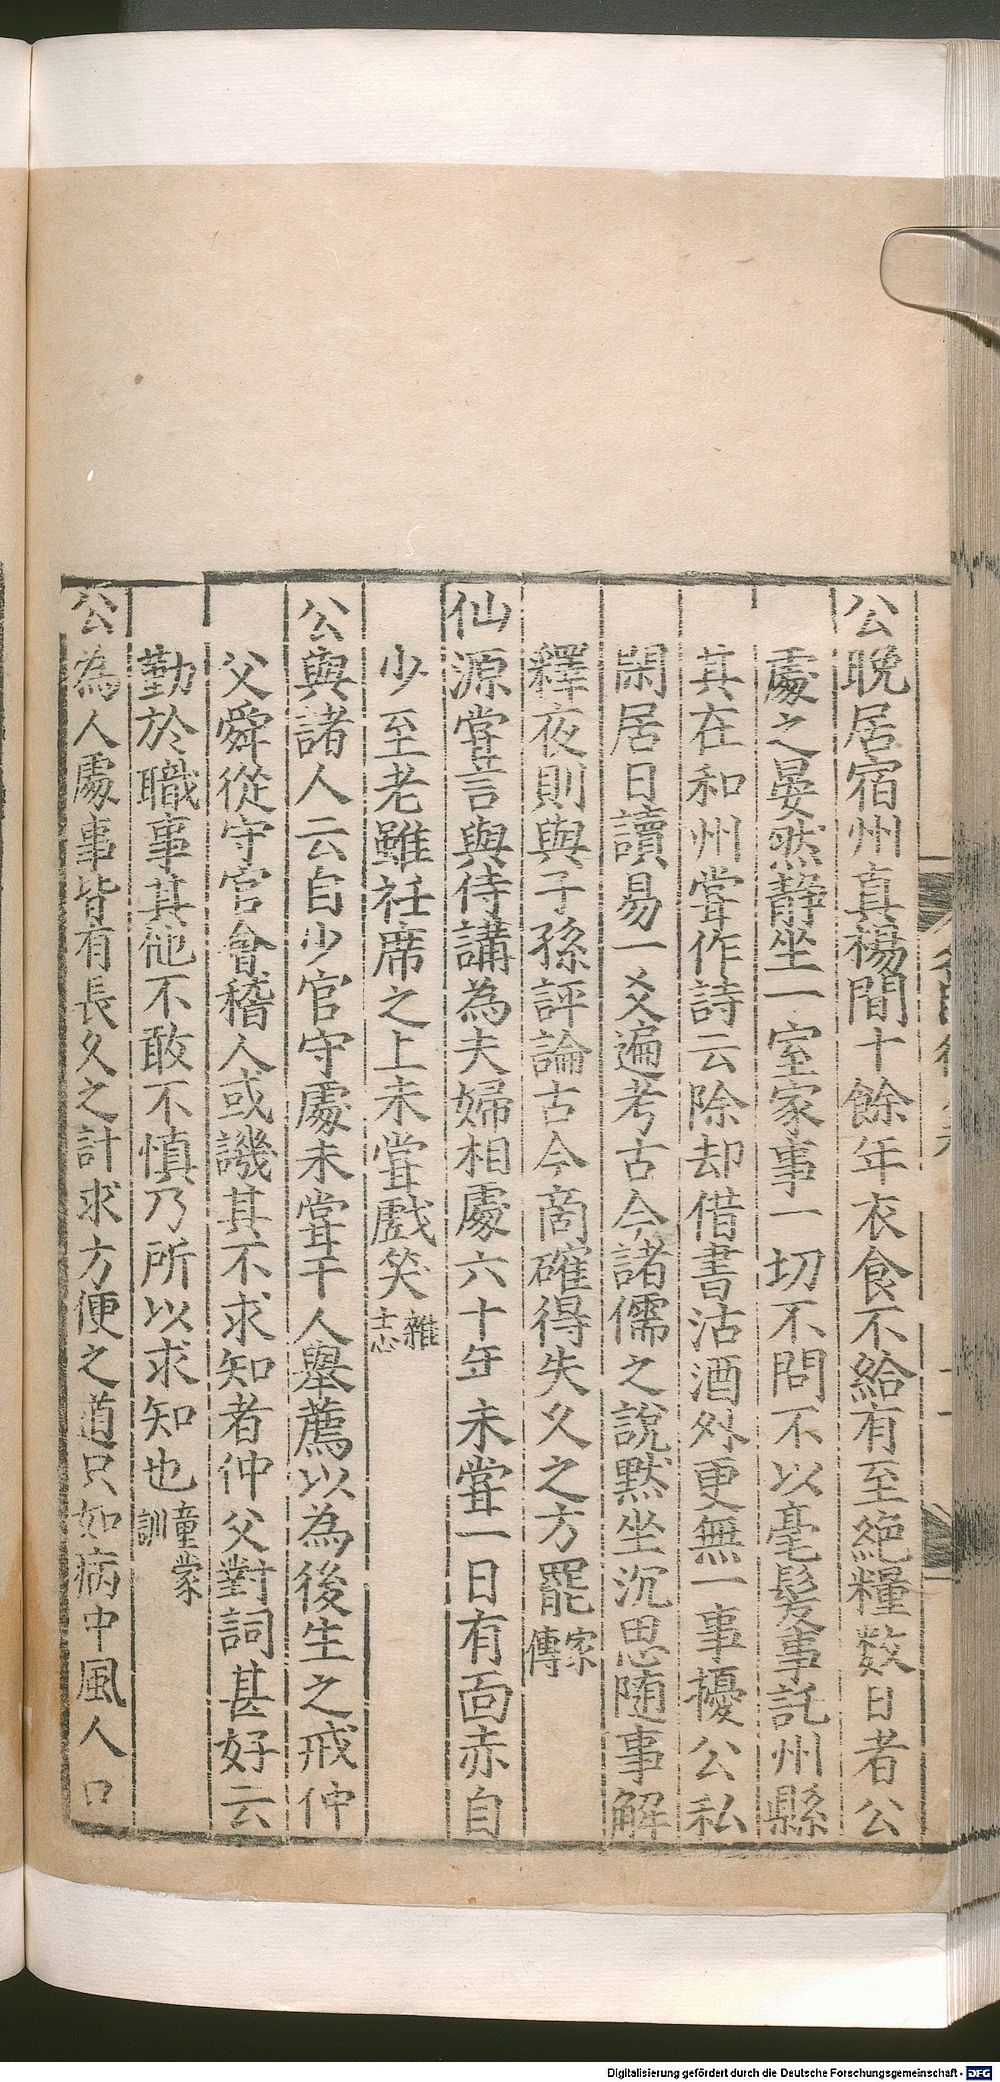 公晩居宿州真楊間十餘年衣食不給有至絶糧数日者公
處之晏然静坐一室家事一切不問不以毫髮事託州縣
其在和州甞作詩云除却借書沽酒外更無一事擾公私
閑居日讀易一爻遍考古今諸儒之說默坐沉思随事解
釋夜則與子孫評論古今商確得失久之方罷家傳
仙源甞言與侍講為夫婦相處六十年未甞一日有面赤自
少至老雖衽席之上未甞戯笑雜志
公與諸人云自少官守處未甞干人舉薦以為後生之戒仲
父舜從守官會稽人或譏其不求知者仲父對詞甚好云
勤於職事其他不敢不慎乃所以求知也童蒙訓
公為人處事皆有長久之計求方便之道只如病中風人口
Digitalisierung gefördert durch die Deutsche Forschungsgemeinschaft - DFG